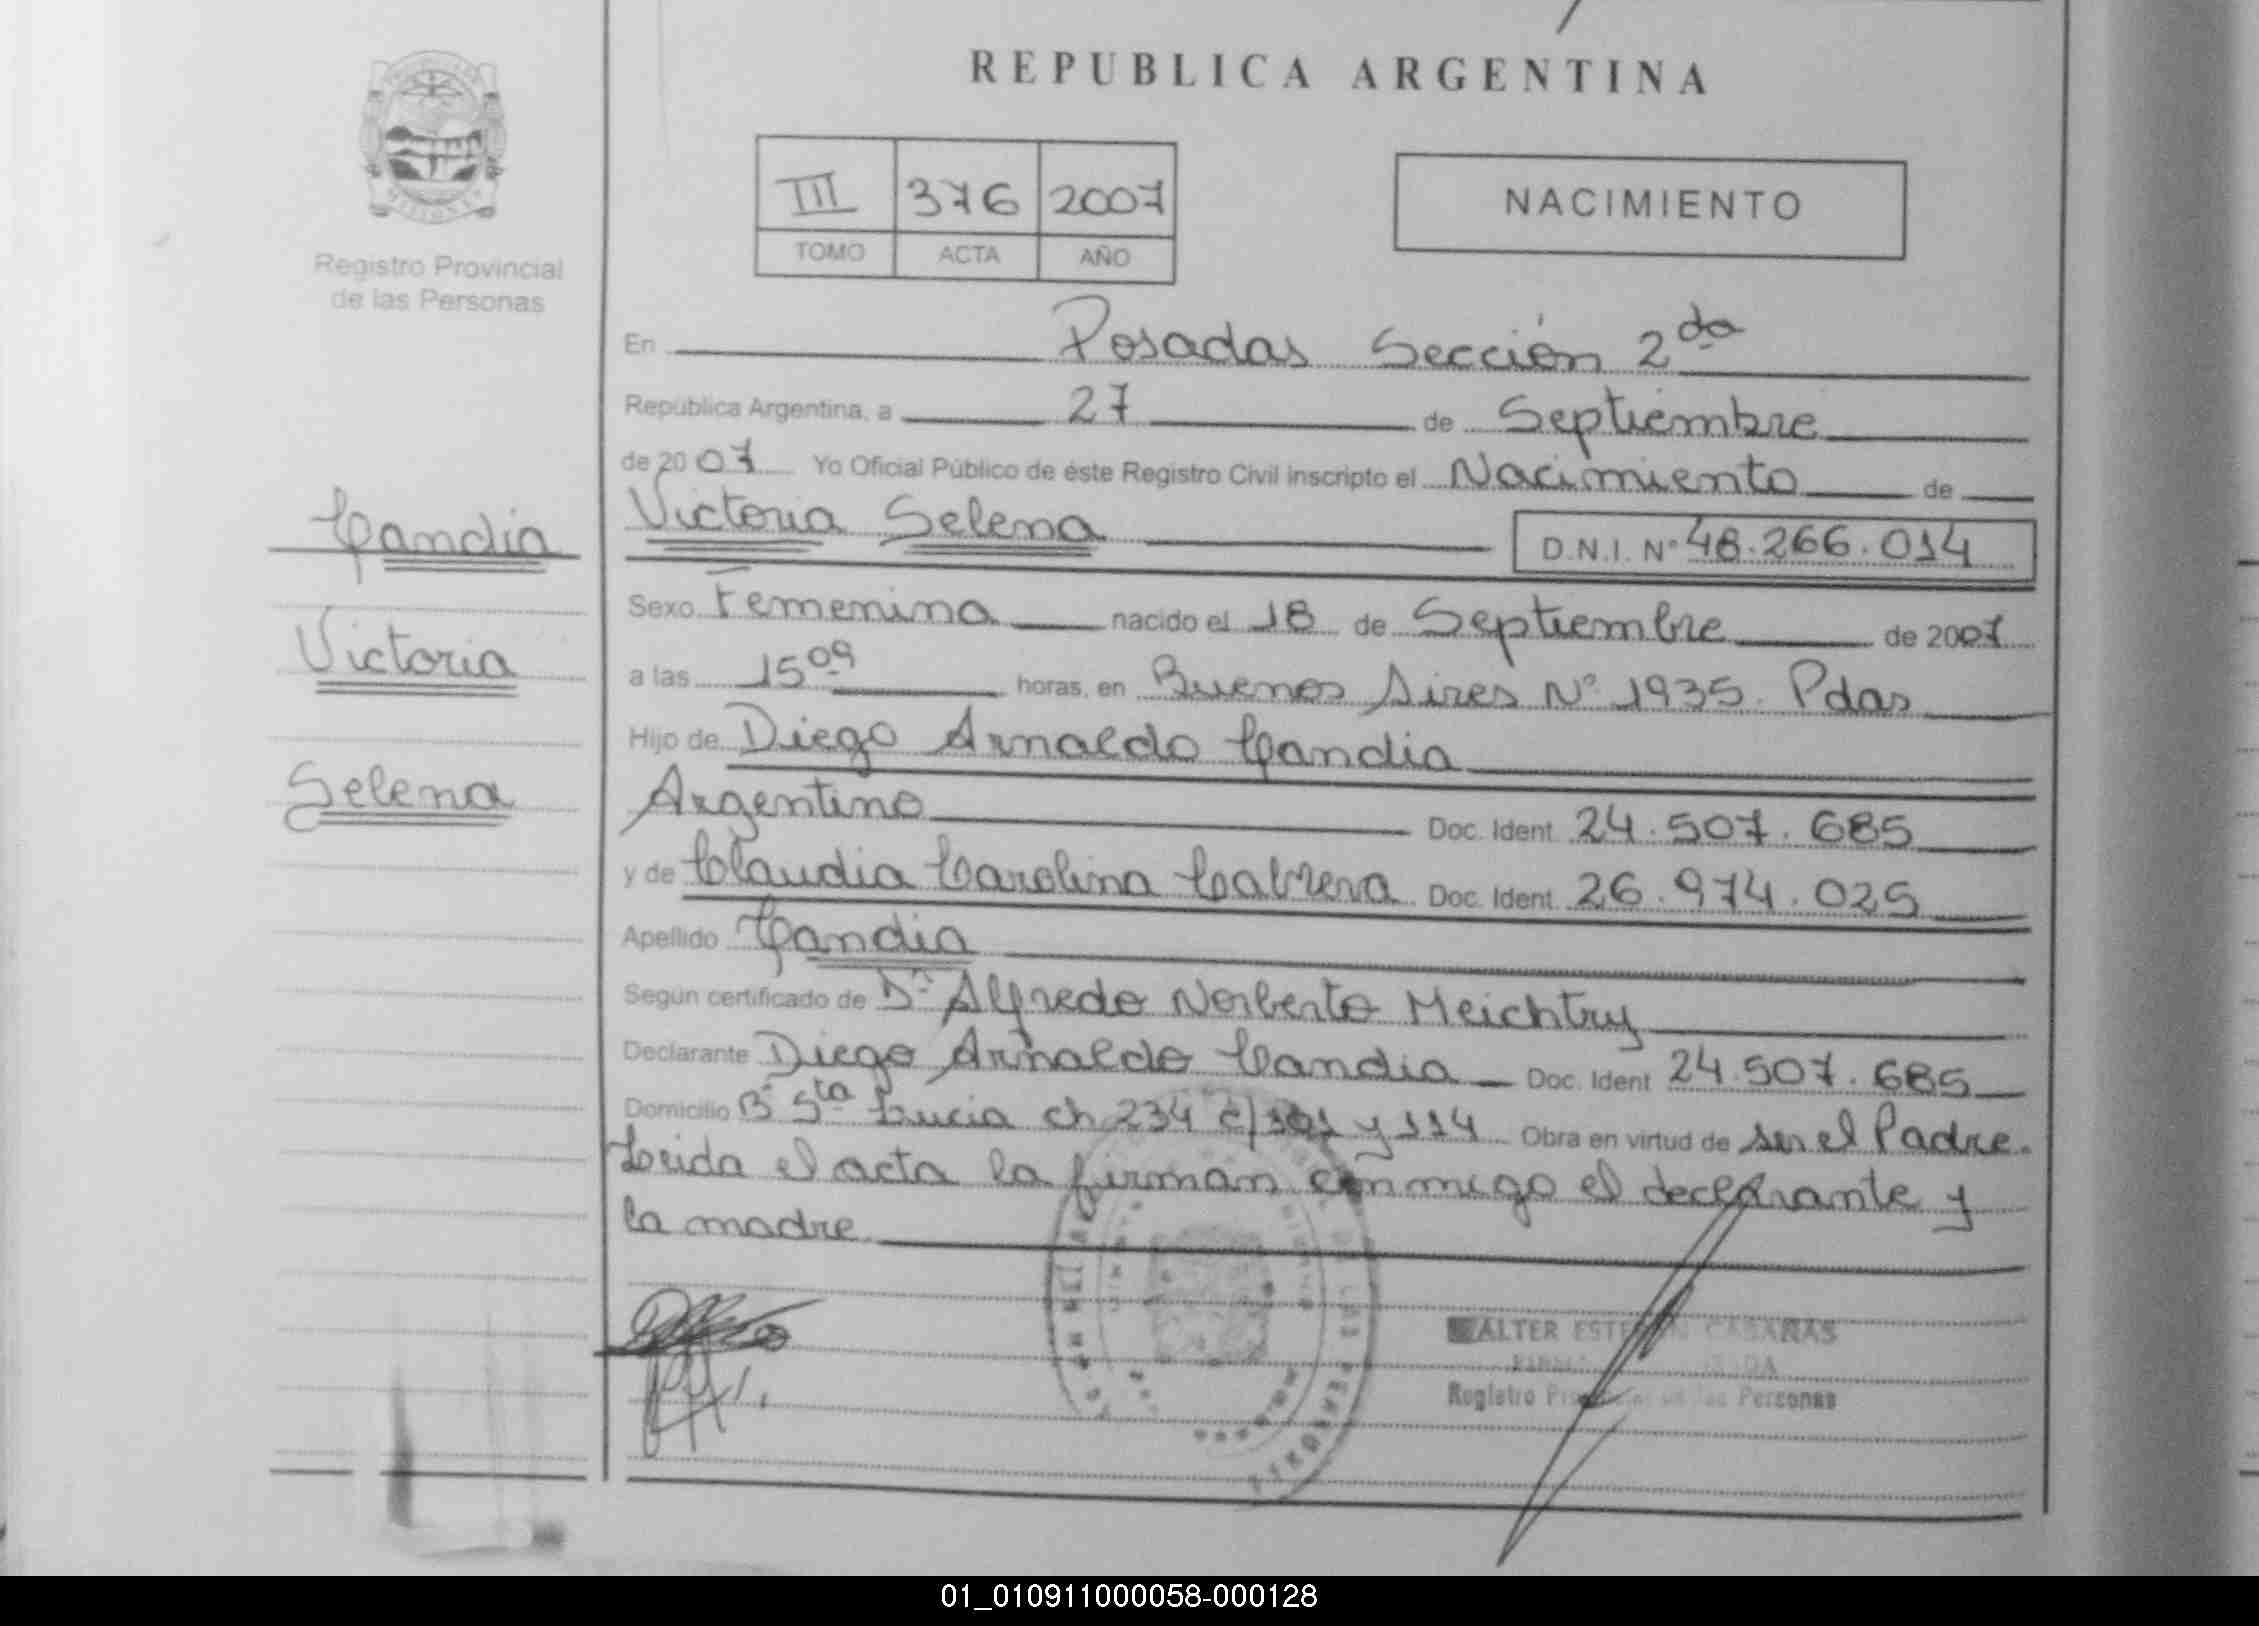 REPUBLICA ARGENTINA
PROVINCIA
MISIONES
Registro Provincial
de las Personas
III 376 2007
TOMO ACTA AÑO
NACIMIENTO
En Posadas Sección 2da
República Argentina, a 27 de Septiembre
de 2007 Yo Oficial Público de éste Registro Civil inscripto el Nacimiento de
Candia
Victoria
Selena
Victoria Selena D.N.I. Nº 48.266.014
Sexo Femenina nacido el 18 de Septiembre de 2007
a las 15 09 horas, en Buenos Aires Nº 1935. Pdas
Hijo de Diego Arnaldo Candia
Argentino Doc. Ident. 24.507.685
y de Claudia Carolina Cabrera Doc. Ident. 26.974.025
Apellido Candia
Según certificado de Dr Alfredo Norberto Meichtry
Declarante Diego Arnaldo Candia Doc. Ident 24.507.685
Domicilio Bº Sta Lucia ch 234 c/ y 114 Obra en virtud de ser el Padre.
Leida el acta la firman conmigo el declarante y
la madre.
WALTER ESTEBAN CABAÑAS
Registro Provincial de las Personas
01_010911000058-000128